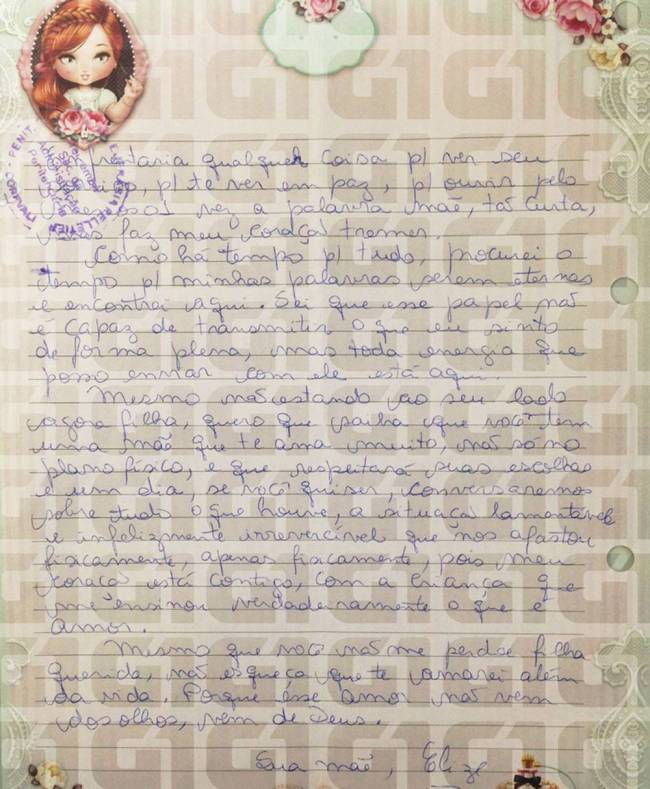 prestaria qualquer coisa p/ ver seu
p/ te ver em paz, p/ ouvir pelo
vez a palavra mãe, tão curta,
mas faz meu coração tremer.
Como há tempo p/ tudo, procurei o
tempo p/ minhas palavras serem eternas
e encontrei aqui. Sei que esse papel não
é capaz de transmitir o que eu sinto
de forma plena, mas toda energia que
posso enviar com ele está aqui.
Mesmo não estando ao seu lado
agora filha, quero que saiba que você tem
uma mãe que te ama muito, não só no
plano físico, e que respeitará suas escolhas
e um dia, se você quiser, conversaremos
sobre tudo o que houve, a situação lamentável
e infelizmente irreversível que nos afastou
fisicamente, apenas fisicamente, pois meu
coração está contigo, com a criança que
me ensinou verdadeiramente o que é
amor.
Mesmo que você não me perdoe filha
querida, não esqueça que te amarei além
da vida. Porque esse amor não vem
dos olhos, vem de Deus.
Sua mãe, Elize
G1